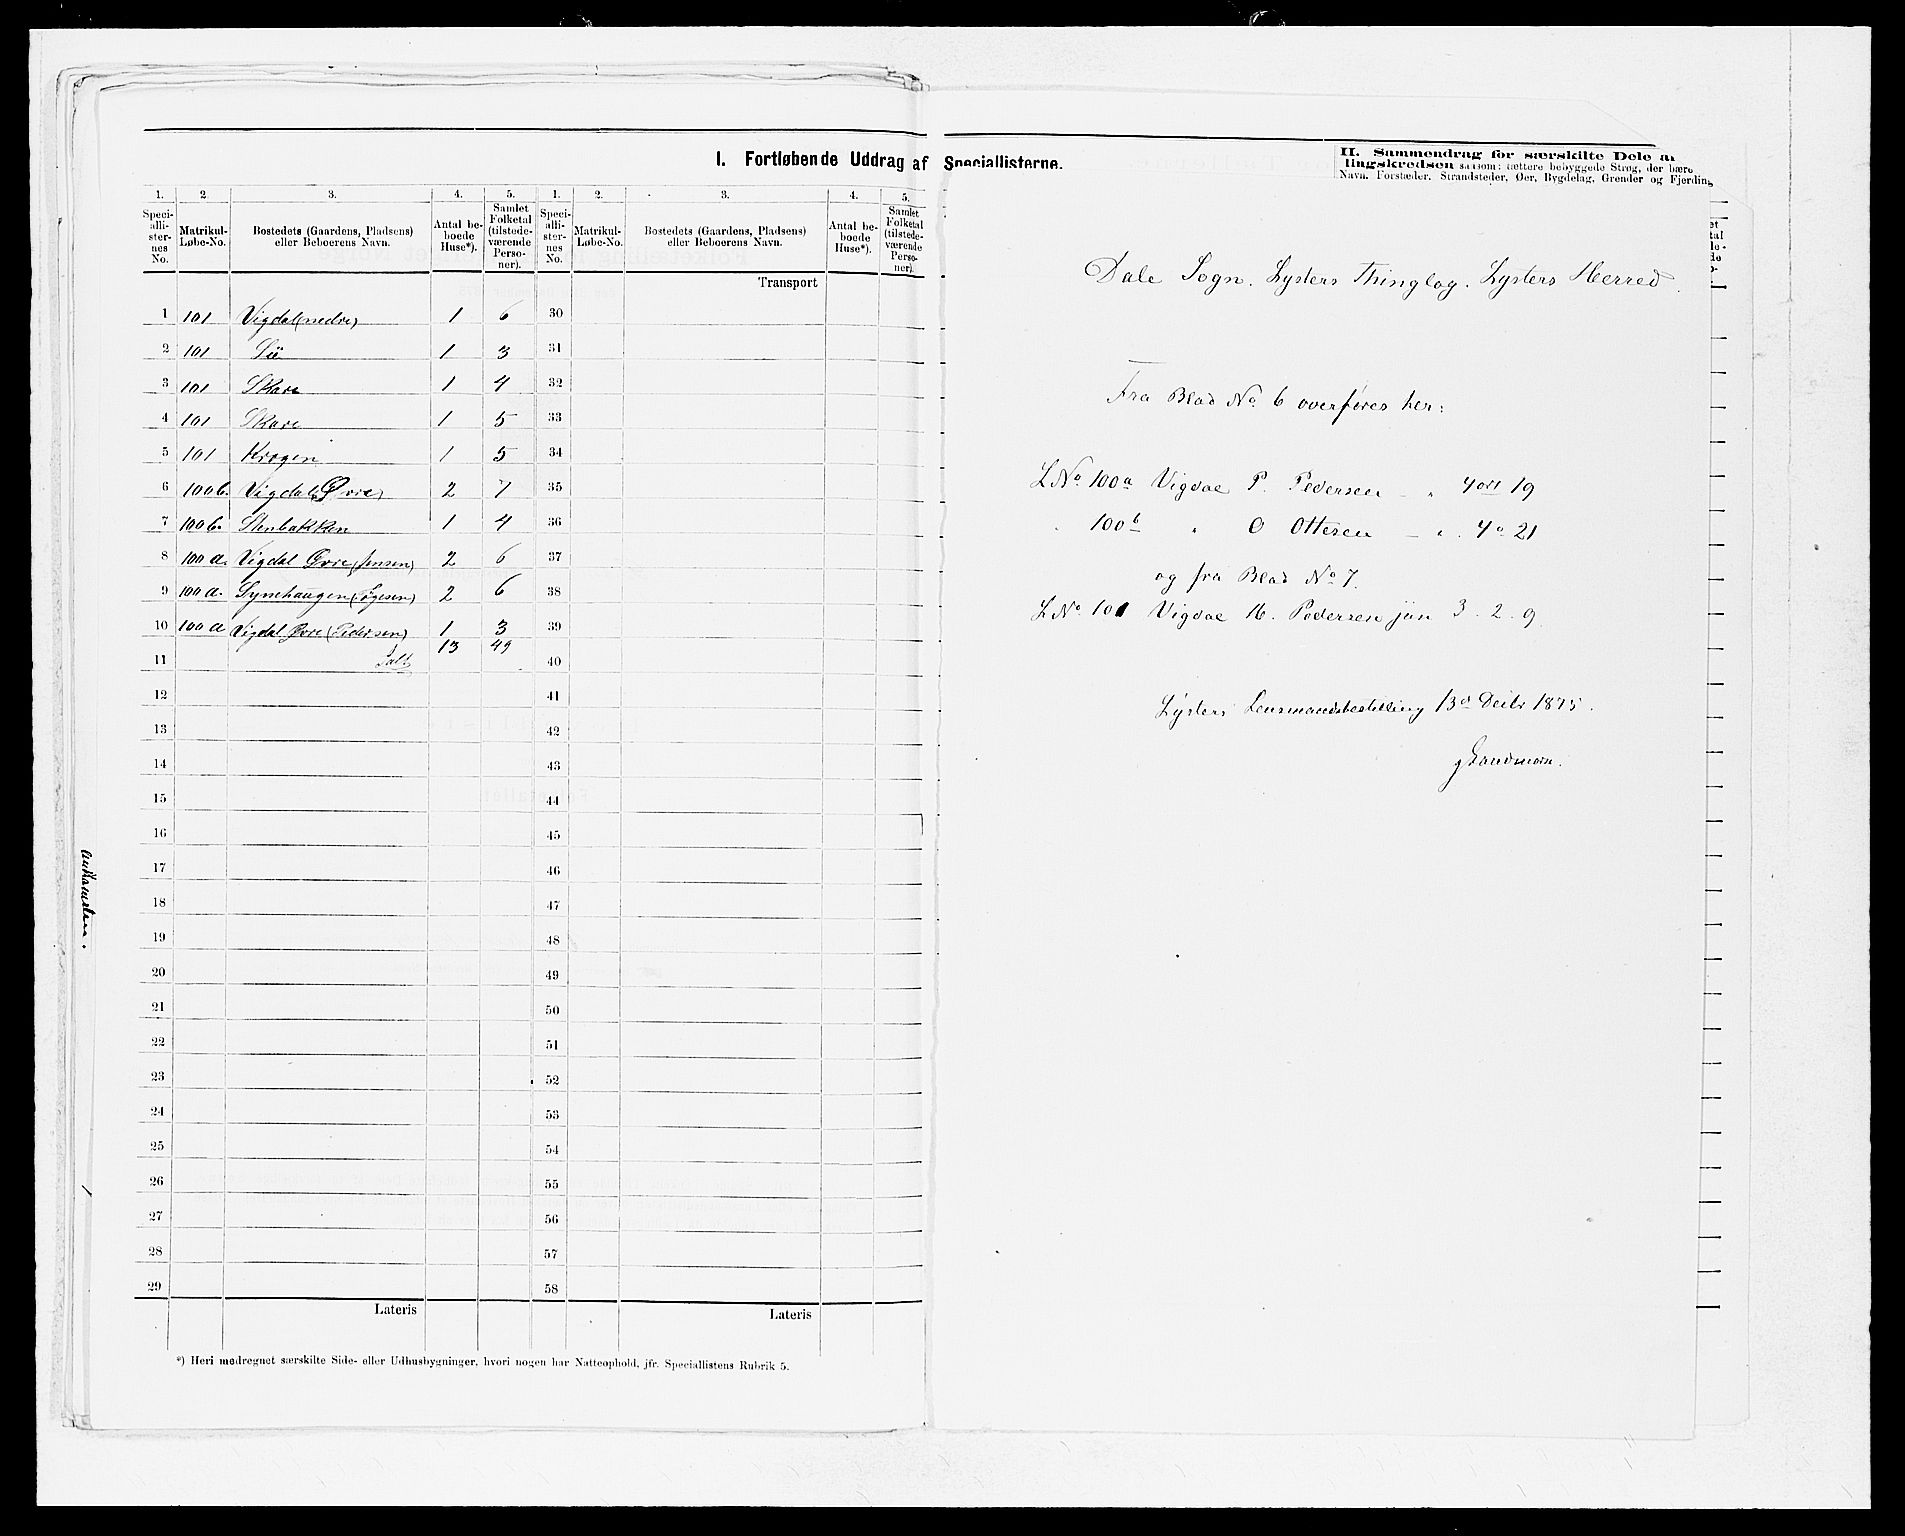 I. Fortløbende Uddrag af Speciallisterne.
II. Sammendrag for særskilte Dele af
lingskredsen saasom: tættere bebyggede Strøg, der bære
Navn. Forstæder, Strandsteder, Øer, Bygdelag, Grender og Fjerding
1. 2. 3. 4. 5. 1. 2. 3. 4. 5.
Speciallisternes No. Matrikul-Løbe-No. Bostedets (Gaardens, Pladsens) eller Beboerens Navn. Antal beboede Huse*). Samlet Folketal (tilstedeværende Personer). Speciallisternes No. Matrikul-Løbe-No. Bostedets (Gaardens, Pladsens) eller Beboerens Navn. Antal beboede Huse*). Samlet Folketal (tilstedeværende Personer).
Transport
1 101 Vigdal (nedre) 1 6 30
2 101 1 3 31
3 101 Skare 1 4 32
4 101 Skare 1 5 33
5 101 Krogen 1 5 34
6 100b. Vigdal (Øvre) 2 7 35
7 100b. Stenbakken 1 4 36
8 100a. Vigdal Øvre (Jensen) 2 6 37
9 100a. Synehaugen 2 6 38
10 100a Vigdal Øvre (Pedersen) 1 3 39
13 49
11 40
12 41
13 42
14 43
15 44
16 45
17 46
18 47
19 48
20 49
21 50
22 51
23 52
24 53
25 54
26 55
27 56
28 57
29 58
Lateris Lateris
*) Heri medregnet særskilte Side- eller Udhusbygninger, hvori nogen har Natteophold, jfr. Speciallistens Rubrik 5.
Dale Sogn. Lysters Thinglag. Lysters Herred.
Fra Blad No. 6 overføres her:
LNo. 100a Vigdal P. Pedersen - " 4 ort 19
" 100b " O Ottesen - " 4 o 21
og fra Blad No 7.
LNo. 101 Vigdal H. Pedersen jun 3 - 2 - 9.
Lysters Lensmandsbestilling 13d Decbr 1875.